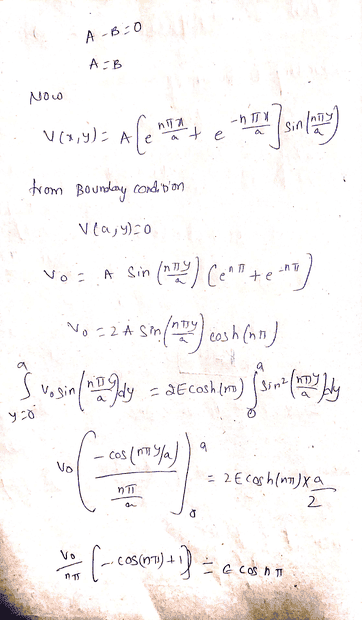 A - B = 0
A = B
Now
V(x,y) = A[e^{nπx/a} + e^{-nπx/a}] sin(nπy/a)
from Boundary condition
V(a,y)=0
V₀ = A Sin(nπy/a) (e^{nπ} + e^{-nπ})
V₀ = 2A Sin(nπy/a) cosh(nπ)
∫_{y=0}^{a} V₀ sin(nπy/a) dy = 2E cosh(nπ) ∫_{0}^{a} sin²(nπy/a) dy
V₀ (-cos(nπy/a) / (nπ/a))_{0}^{a} = 2E cosh(nπ) x a/2
V₀/nπ [-cos(nπ) + 1] = E cos nπ